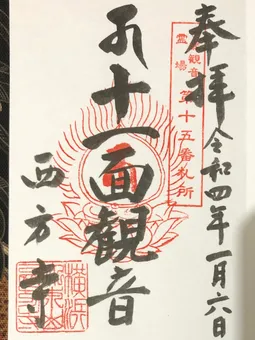 奉拝
令和四年一月六日
観音霊場
第十五番札所
十一面観音
西方寺
横浜